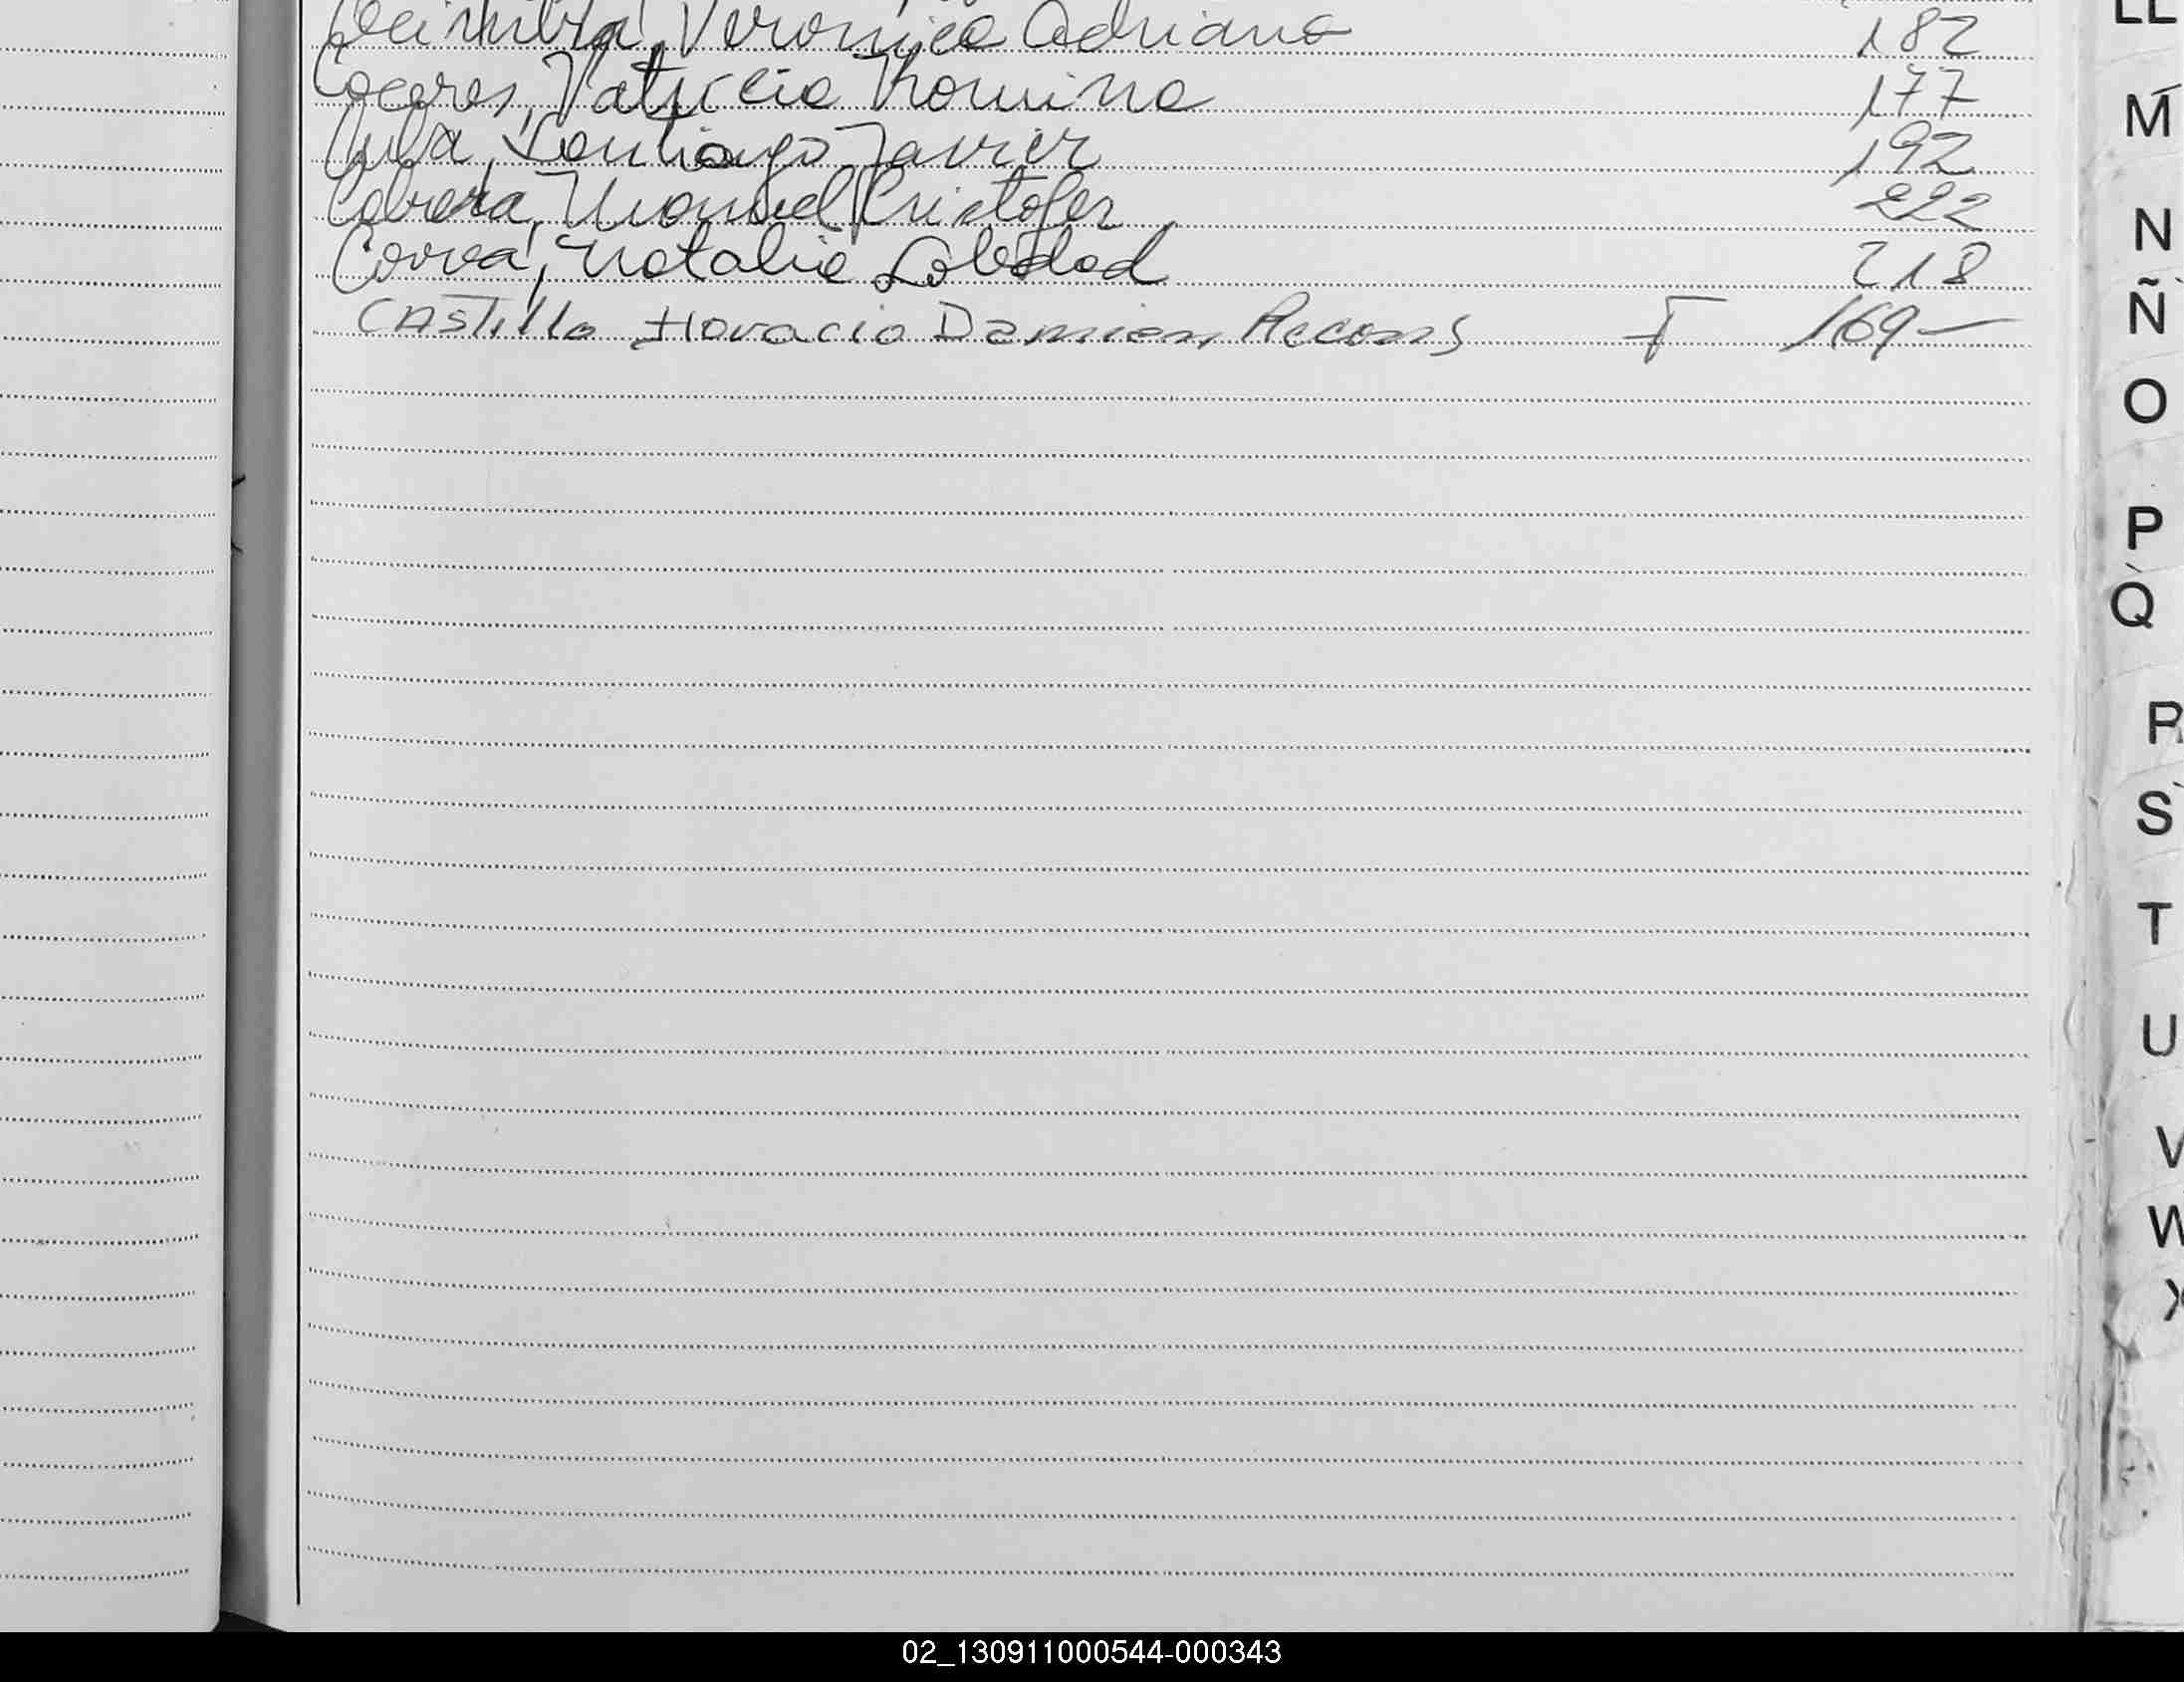 Verónica Adriana 182
Caceres, Patricia Romina 177
Cuba, Santiago Javier 192
Cabrera, Manuel Cristofer 222
Correa, Natalia Soledad 218
Castillo Horacio Damian, Recons T 169
LL
M
N
Ñ
O
P
Q
R
S
T
U
V
W
X
02_130911000544-000343